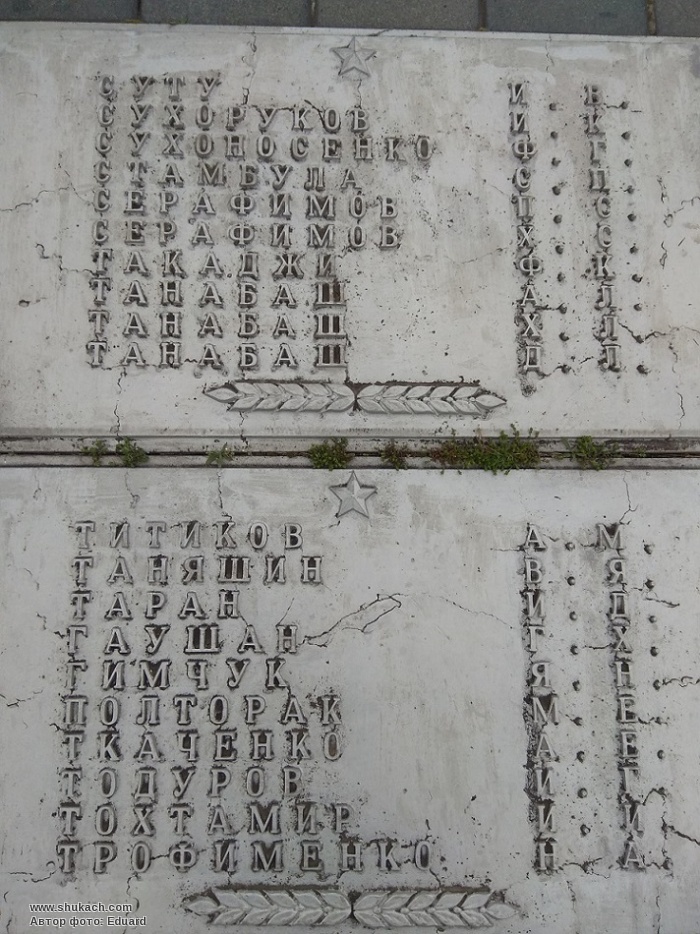 СУТУ И. В.
СУХОРУКОВ И. К.
СУХОНОСЕНКО Ф. Г.
СТАМБУЛА С. П.
СЕРАФИМОВ П. С.
СЕРАФИМОВ Х. С.
ТАКАДЖИ Ф. К.
ТАНАБАШ А. Л.
ТАНАБАШ Х. Л.
ТАНАБАШ Д. Л.
ТИТИКОВ А. М.
ТАНЯШИН В. Я.
ТАРАН И. Д.
ГАУШАН Г. Х.
ГИМЧУК Я. Н.
ПОЛТОРАК М. Е.
ТКАЧЕНКО А. Е.
ТОДУРОВ И. Г.
ТОХТАМИР И. И.
ТРОФИМЕНКО Н. А.
www.shukach.com
Автор фото: Eduard